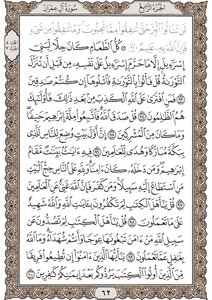 الجزء الرابع سورة آل عمران
لَن تَنَالُوا۟ ٱلْبِرَّ حَتَّىٰ تُنفِقُوا۟ مِمَّا تُحِبُّونَ وَمَا تُنفِقُوا۟ مِن شَىْءٍ
فَإِنَّ ٱللَّهَ بِهِۦ عَلِيمٌ ٩٢ كُلُّ ٱلطَّعَامِ كَانَ حِلًّا لِّبَنِىٓ
إِسْرَٰٓءِيلَ إِلَّا مَا حَرَّمَ إِسْرَٰٓءِيلُ عَلَىٰ نَفْسِهِۦ مِن قَبْلِ أَن تُنَزَّلَ
ٱلتَّوْرَىٰةُ قُلْ فَأْتُوا۟ بِٱلتَّوْرَىٰةِ فَٱتْلُوهَآ إِن كُنتُمْ صَٰدِقِينَ
٩٣ فَمَنِ ٱفْتَرَىٰ عَلَى ٱللَّهِ ٱلْكَذِبَ مِنۢ بَعْدِ ذَٰلِكَ فَأُو۟لَٰٓئِكَ
هُمُ ٱلظَّٰلِمُونَ ٩٤ قُلْ صَدَقَ ٱللَّهُ فَٱتَّبِعُوا۟ مِلَّةَ إِبْرَٰهِيمَ حَنِيفًا
وَمَا كَانَ مِنَ ٱلْمُشْرِكِينَ ٩٥ إِنَّ أَوَّلَ بَيْتٍ وُضِعَ لِلنَّاسِ لَلَّذِى
بِبَكَّةَ مُبَارَكًا وَهُدًى لِّلْعَٰلَمِينَ ٩٦ فِيهِ ءَايَٰتٌۢ بَيِّنَٰتٌ مَّقَامُ
إِبْرَٰهِيمَ وَمَن دَخَلَهُۥ كَانَ ءَامِنًا وَلِلَّهِ عَلَى ٱلنَّاسِ حِجُّ ٱلْبَيْتِ
مَنِ ٱسْتَطَاعَ إِلَيْهِ سَبِيلًا وَمَن كَفَرَ فَإِنَّ ٱللَّهَ غَنِىٌّ عَنِ ٱلْعَٰلَمِينَ
٩٧ قُلْ يَٰٓأَهْلَ ٱلْكِتَٰبِ لِمَ تَكْفُرُونَ بِـَٔايَٰتِ ٱللَّهِ وَٱللَّهُ شَهِيدٌ
عَلَىٰ مَا تَعْمَلُونَ ٩٨ قُلْ يَٰٓأَهْلَ ٱلْكِتَٰبِ لِمَ تَصُدُّونَ عَن
سَبِيلِ ٱللَّهِ مَنْ ءَامَنَ تَبْغُونَهَا عِوَجًا وَأَنتُمْ شُهَدَآءُ وَمَا ٱللَّهُ
بِغَٰفِلٍ عَمَّا تَعْمَلُونَ ٩٩ يَٰٓأَيُّهَا ٱلَّذِينَ ءَامَنُوٓا۟ إِن تُطِيعُوا۟ فَرِيقًا
مِّنَ ٱلَّذِينَ أُوتُوا۟ ٱلْكِتَٰبَ يَرُدُّوكُم بَعْدَ إِيمَٰنِكُمْ كَٰفِرِينَ ١٠٠
٦٢